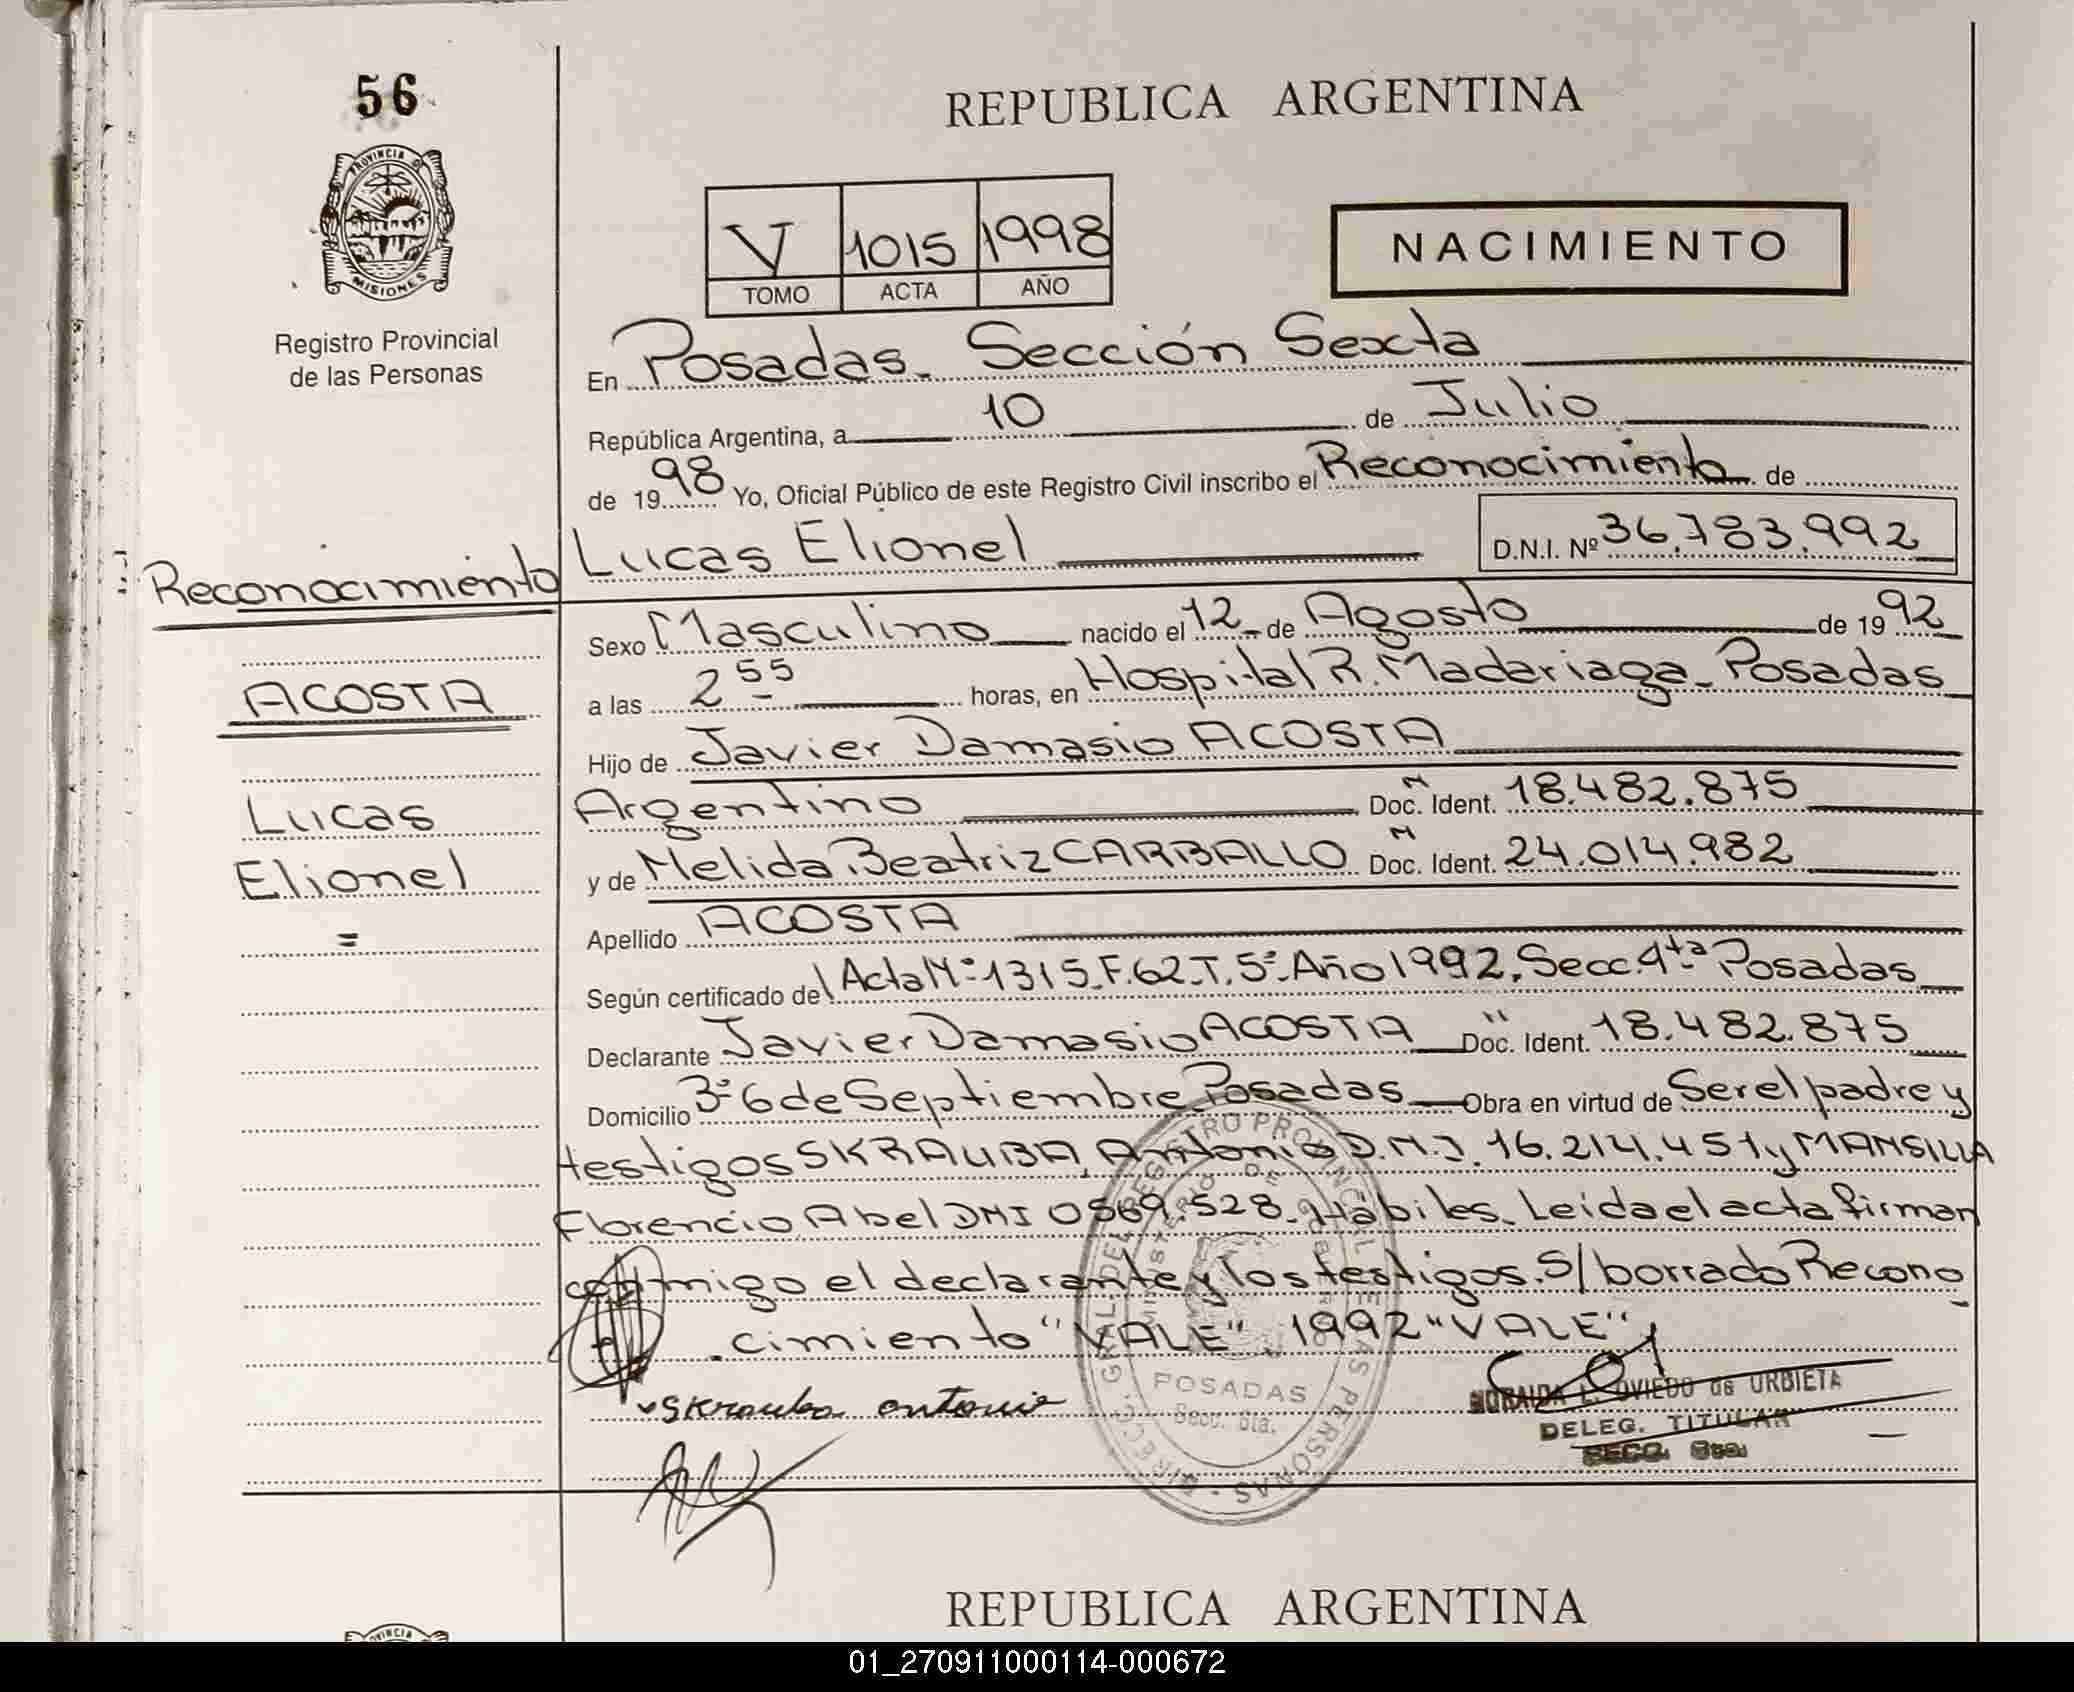 56
REPUBLICA ARGENTINA
PROVINCIA DE
MISIONES
Registro Provincial
de las Personas
V 1015 1998
TOMO ACTA AÑO
NACIMIENTO
En Posadas. Sección Sexta
República Argentina, a 10 de Julio
de 1998 Yo, Oficial Público de este Registro Civil inscribo el Reconocimiento de
Lucas Elionel D.N.I. Nº 36.783.992
Reconocimiento
ACOSTA
Lucas
Elionel
=
Sexo Masculino nacido el 12 de Agosto de 1992
a las 2 55 horas, en Hospital R. Madariaga - Posadas
Hijo de Javier Damasio ACOSTA
Argentino Doc. Ident. 18.482.875
y de Melida Beatriz CARBALLO Doc. Ident. 24.014.982
Apellido ACOSTA
Según certificado de Acta Nº 1315 F. 62 T. 5º Año 1992, Secc. 4ta Posadas
Declarante Javier Damasio ACOSTA Doc. Ident. 18.482.875
Domicilio 3º 6 de Septiembre Posadas Obra en virtud de Ser el padre y
testigos SKRAUBA, Antonio D.N.I. 16.214.451 y MANSILLA
Florencio Abel DNI 0569.528 - Hábiles - Leída el acta firman
conmigo el declarante y los testigos. S/borrado Recono
cimiento "VALE". 1992 "VALE"
Skrauba antonio
L. OVIEDO de URBIETA
DELEG. TITULAR
SECC. 6ta.
DIRECC. GRAL. DEL REGISTRO PROVINCIAL DE LAS PERSONAS
MINISTERIO DE GOBIERNO
POSADAS
Secc. 6ta.
REPUBLICA ARGENTINA
01_270911000114-000672